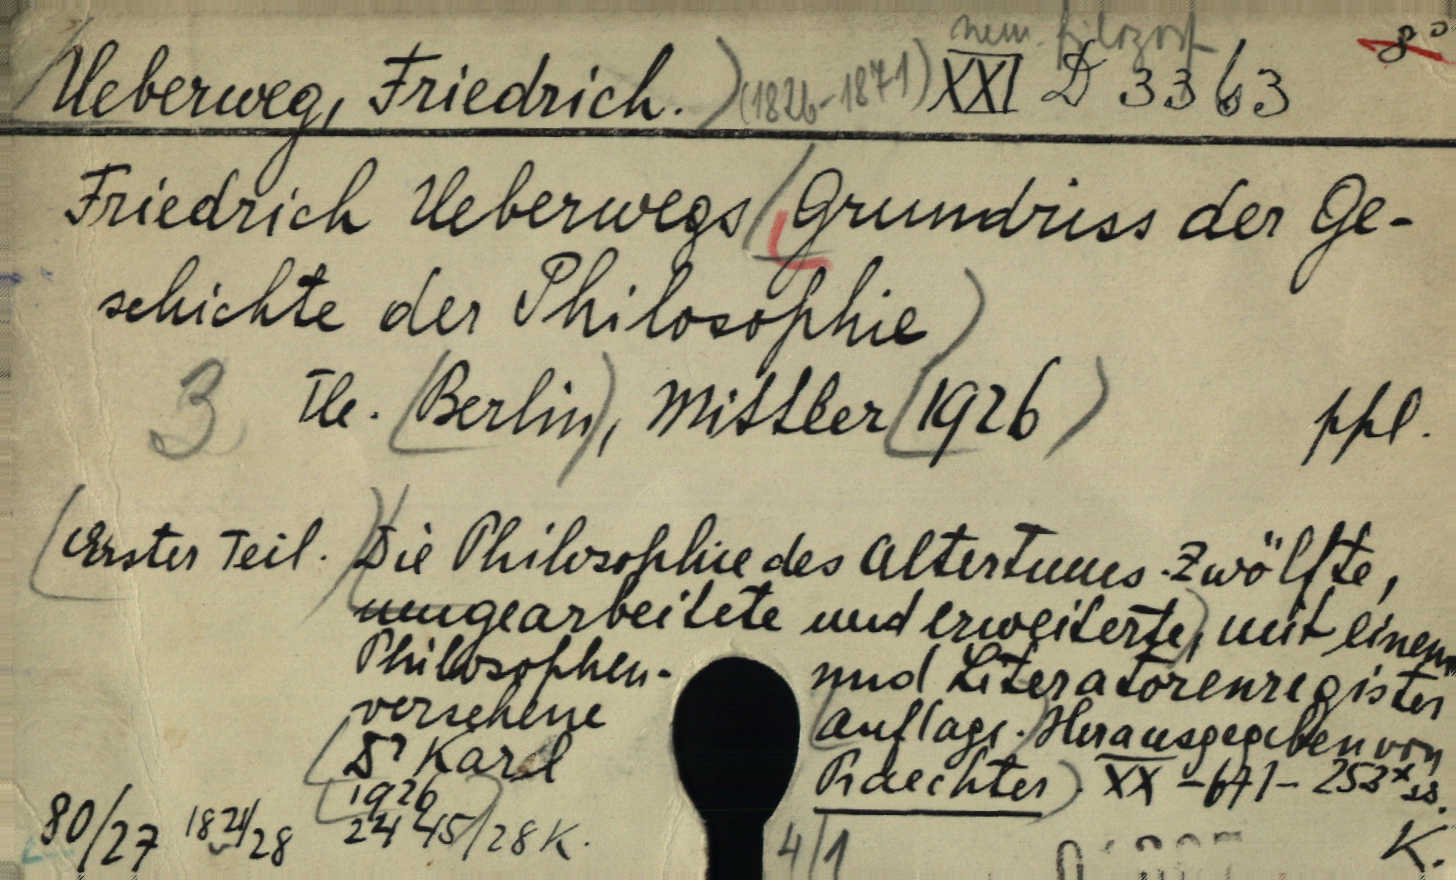 něm. filozof 8°
Ueberweg, Friedrich. (1826-1871) XXI D 3363
Friedrich Ueberwegs Grundriss der Ge-
schichte der Philosophie
3 Tle. Berlin, Mittler 1926 ppl.
Erster Teil. Die Philosophie des Altertums. Zwölfte,
umgearbeitete und erweiterte, mit einem
Philosophen- und Literatorenregister
versehene Auflage. Herausgegeben von
Dr Karl Praechter. XX - 671 - 253x ss.
1926
80/27 1824/28 24 45/28 K. 4/1 K.